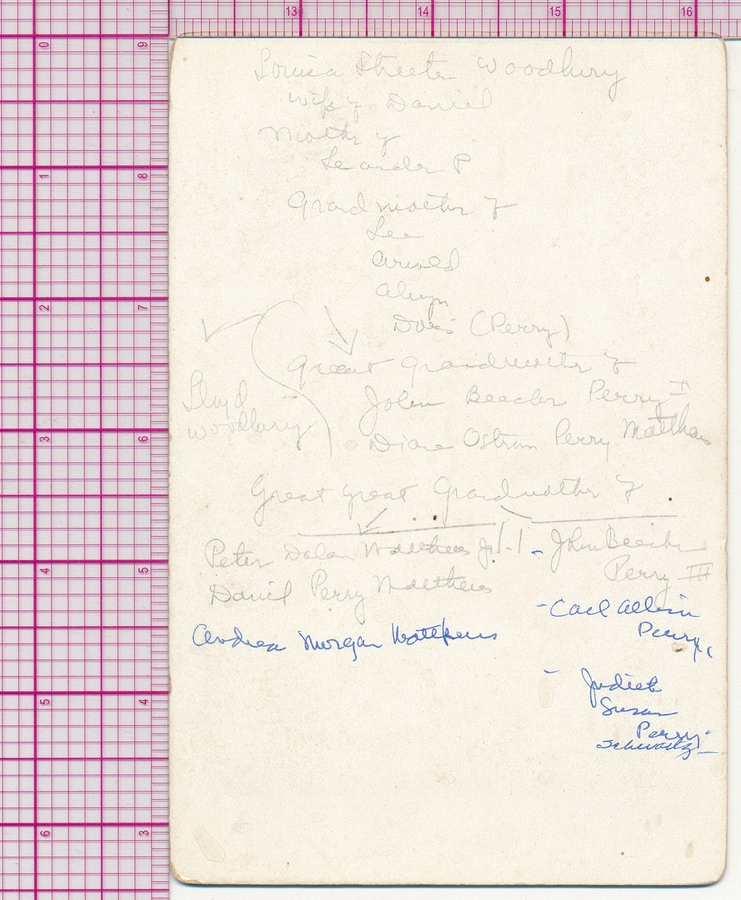 13 14 15 16
0 9
1 8
2 7
3 6
4 5
5 4
6 3
Louisa Streeter Woodbury
wife of Daniel
Mother of
Leander P
Grandmother of
Lee
Arnold
Alwyn
Doris (Perry)
Great grandmother of
Lloyd
Woodbury
John Beecher Perry II
Diane Ostrom Perry Matthews
Great great Grandmother of
Peter Dolan Matthews Jr.
Daniel Perry Matthews
Andrea Morgan Matthews
- John Beecher
Perry III
- Carl Allein
Perry,
- Judith
Susan
Perry
Schwartz -